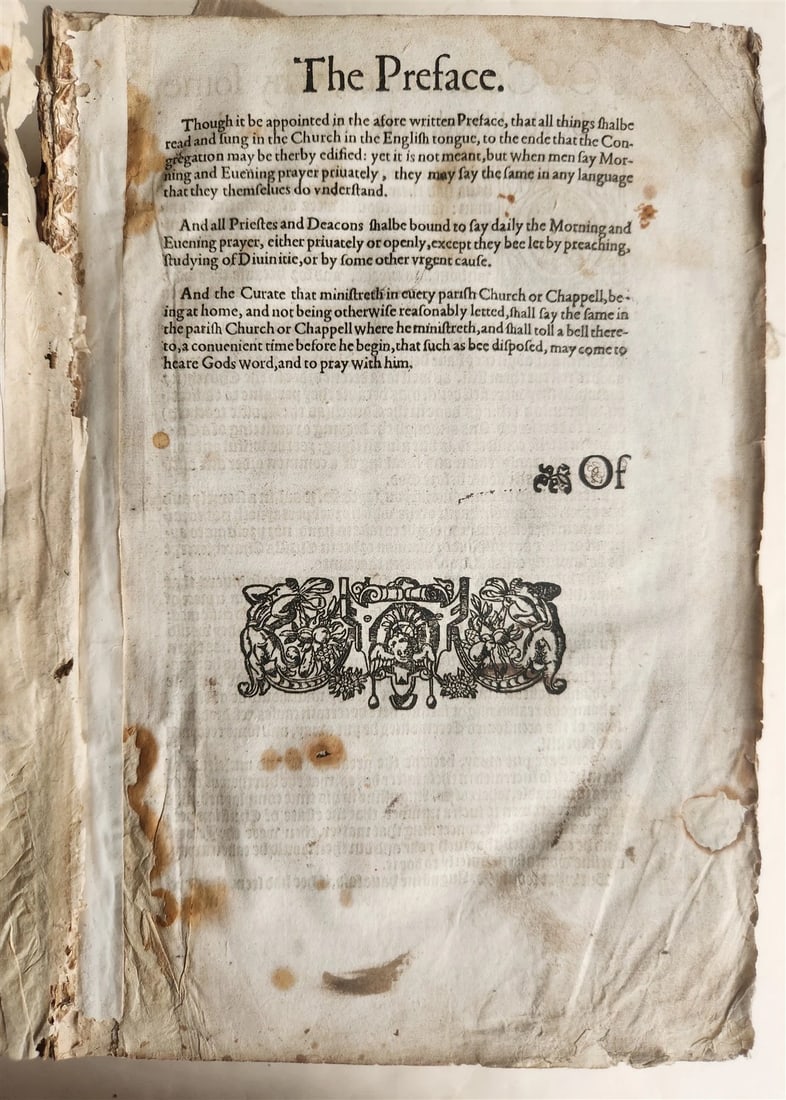 The Preface.
Though it be appointed in the afore written Preface, that all things ſhalbe
read and ſung in the Church in the Engliſh tongue, to the ende that the Con-
gregation may be therby edified: yet it is not meant, but when men ſay Mor-
ning and Euening prayer priuately, they may ſay the ſame in any language
that they themſelues do vnderſtand.
And all Prieſtes and Deacons ſhalbe bound to ſay daily the Morning and
Euening prayer, either priuately or openly, except they bee let by preaching,
ſtudying of Diuinitie, or by ſome other vrgent cauſe.
And the Curate that miniſtreth in euery pariſh Church or Chappell, be-
ing at home, and not being otherwiſe reaſonably letted, ſhall ſay the ſame in
the pariſh Church or Chappell where he miniſtreth, and ſhall toll a bell there-
to, a conuenient time before he begin, that ſuch as bee diſpoſed, may come to
heare Gods word, and to pray with him.
Of